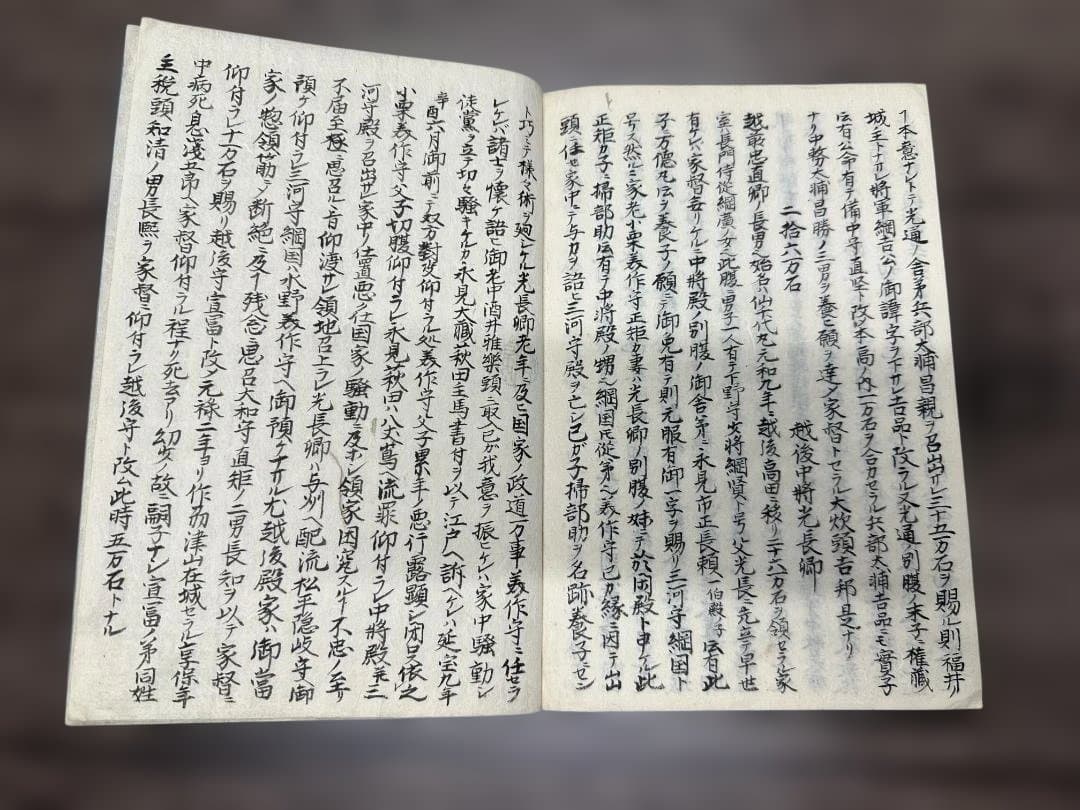 ア本意ナレトテ光通ノ舎弟兵部大浦昌親ヲ召出サレ三十五万石ヲ賜ル則福井ノ
城主トナル將軍綱吉公ノ御諱字ヲ下サレ吉品ト改ラル又光通ノ別腹ノ末子ニ權藏
伝有公命有テ備中守直堅ト改以本高ノ内一万石ヲ合力セラル兵部大浦吉品ニモ實子
ナリ中務大浦昌勝ノ三男ヲ養ヒ願ヲ達ノ家督トセラル大炊頭吉邦是ナリ
二拾六万石 越後中將光長卿
越前忠直卿ノ長男ヘ始名仙千代丸元和九年ニ越後高田ニ移リ二十六万石ヲ領セラル家
室ハ長門侍從綱廣ノ女ヘ此腹ニ男子一人有テ下野守女將綱賢ト号ス父光長ニ先立テ早世
有ケレバ家督ナリケル中將殿ノ別腹ノ御舎弟ニ永見市正長頼一伯殿ノ子伝有此
子ニ万徳丸伝ヲ養子ノ願ニテ御免有テ則元服有御一字ヲ賜リ三河守綱国ト
号ス然ルニ家老小栗義作守正矩カ妻ハ光長卿ノ別腹ノ妹ニテ於閑殿ト申ケル此
正矩カ子ニ掃部助伝有テ中將殿ノ甥ヘ綱国氏從弟ヘ義作守己カ縁ニ因テ出
頭ニ任せ家中ニテ与力ヲ語ヒ三河守殿ヲ亡シ己が子掃部助ヲ名跡養子ニセン
ト巧ミテ様々術ヲ廻シケル光長卿老年ニ及ヒ国家ノ政道万事義作守ニ任セラ
レケバ諸士ヲ懐ケ語ヒ御老中酒井雅樂頭ニ取込我意ヲ振ヒシハ家中騒動シ
徒黨ヲ立テ切々騒キケルカ永見大藏萩田主馬書付ヲ以テ江戸ヘ訴ヘケレハ延宝九年
辛酉六月御前ニテ双方對决仰付ラル処義作守父子累年ノ悪行露顕シ閉口依之
小栗義作守父子切腹仰付ラレ永見萩田ハ八丈嶌ヘ流罪仰付ラレ中將殿并三
河守殿ヲ召出サレ家中ノ仕置悪ノ仕国家ノ騒動ニ及ホシ領家困窮スルヿ不忠ノ至リ
不届至極ニ思召ル旨仰渡サレ領地召上ラレ光長卿ハ与州ヘ配流松平隠岐守ヘ御
預ケ仰付ラレ三河守綱国ハ水野義作守ヘ御預ケナサル尤越後殿家ハ御當
家ノ惣領筋ニテ断絶ニ及ヿ残念ニ思召大和守直矩ノ二男長知ヲ以テ家督ニ
仰付ラレ十万石ヲ賜リ越後守宣富ト改ム元禄二年ヨリ作刕津山在城セラル享保年
中病死息淺五郎ヘ家督仰付ラル程ナリ死去アリ幼少ノ故ニ嗣子ナシ宣富ノ弟同姓
主税頭知清ノ男長熙ヲ家督ニ仰付ラレ越後守ト改ム此時五万石トナル